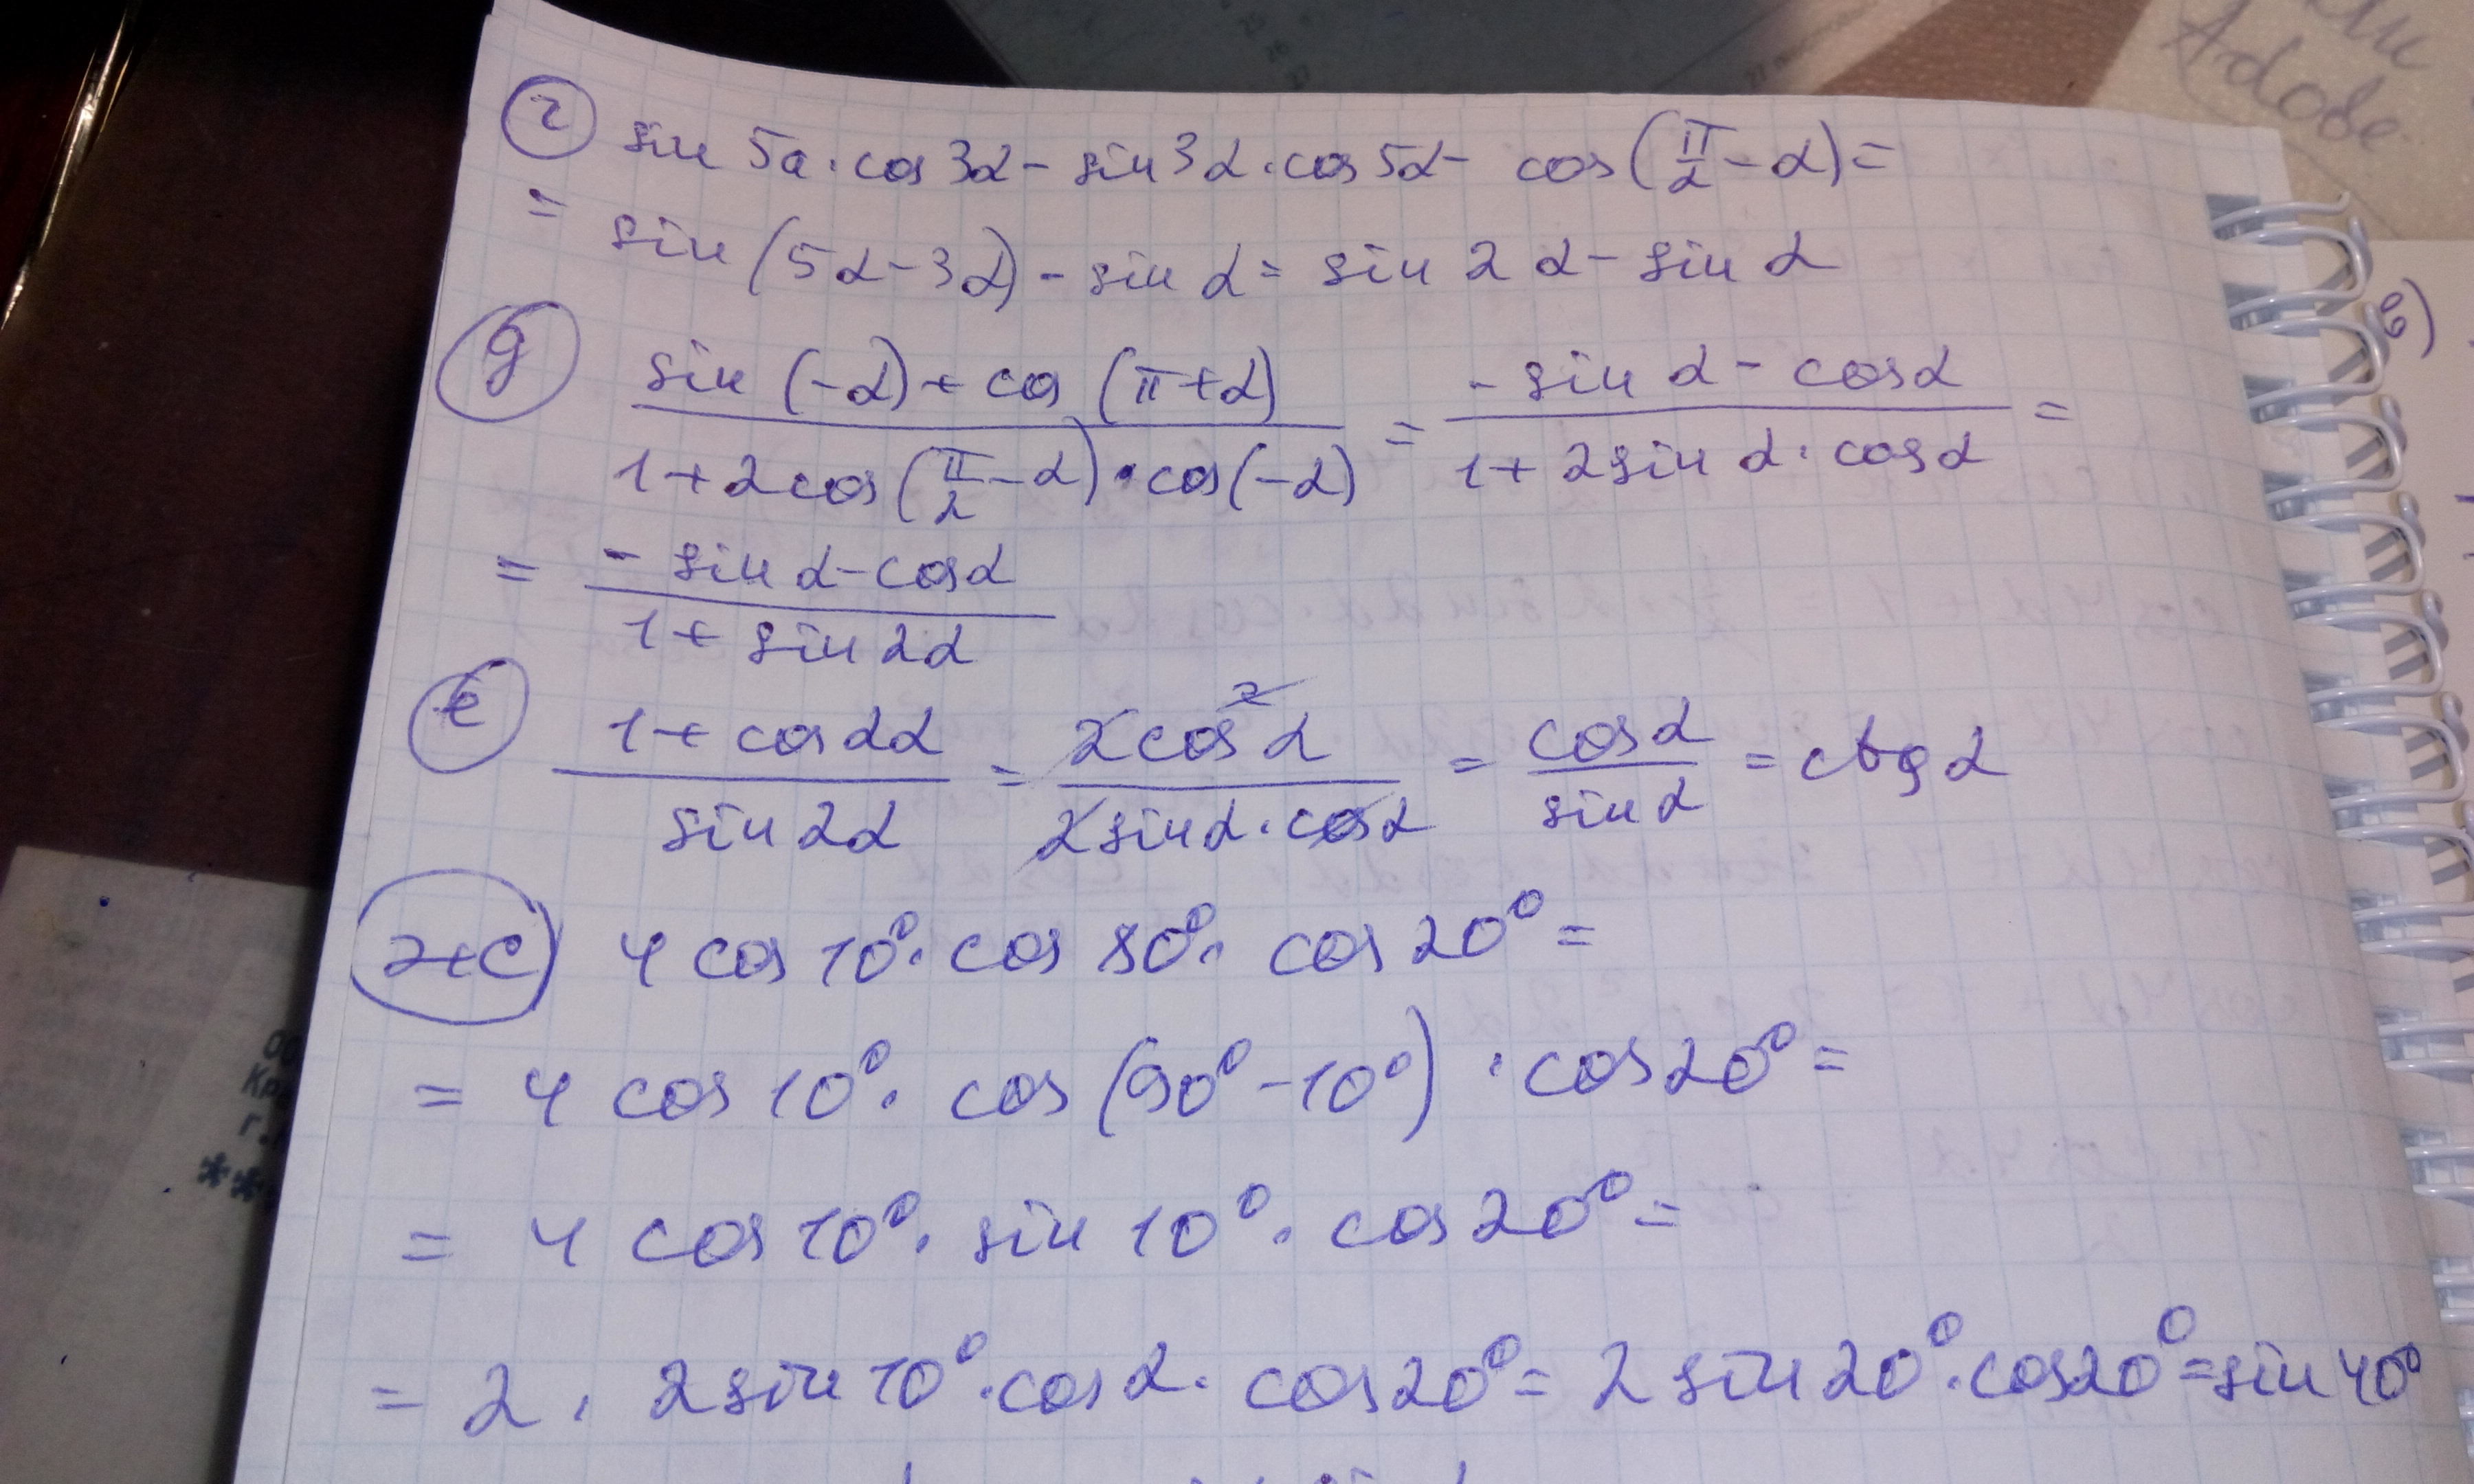 Adobe
г) sin 5a · cos 3α - sin 3α · cos 5α - cos (π/2 - α) =
= sin (5α - 3α) - sin α = sin 2α - sin α
в)
д) (sin (-α) + cos (π + α)) / (1 + 2cos (π/2 - α) · cos(-α)) = (- sin α - cos α) / (1 + 2sin α · cos α) =
= (- sin α - cos α) / (1 + sin 2α)
е) (1 + cos 2α) / (sin 2α) = (2cos² α) / (2sin α · cos α) = cos α / sin α = ctg α
ж) 4 cos 10° · cos 80° · cos 20° =
= 4 cos 10° · cos (90° - 10°) · cos 20° =
= 4 cos 10° · sin 10° · cos 20° =
= 2 · 2 sin 10° · cos α · cos 20° = 2 sin 20° · cos 20° = sin 40°